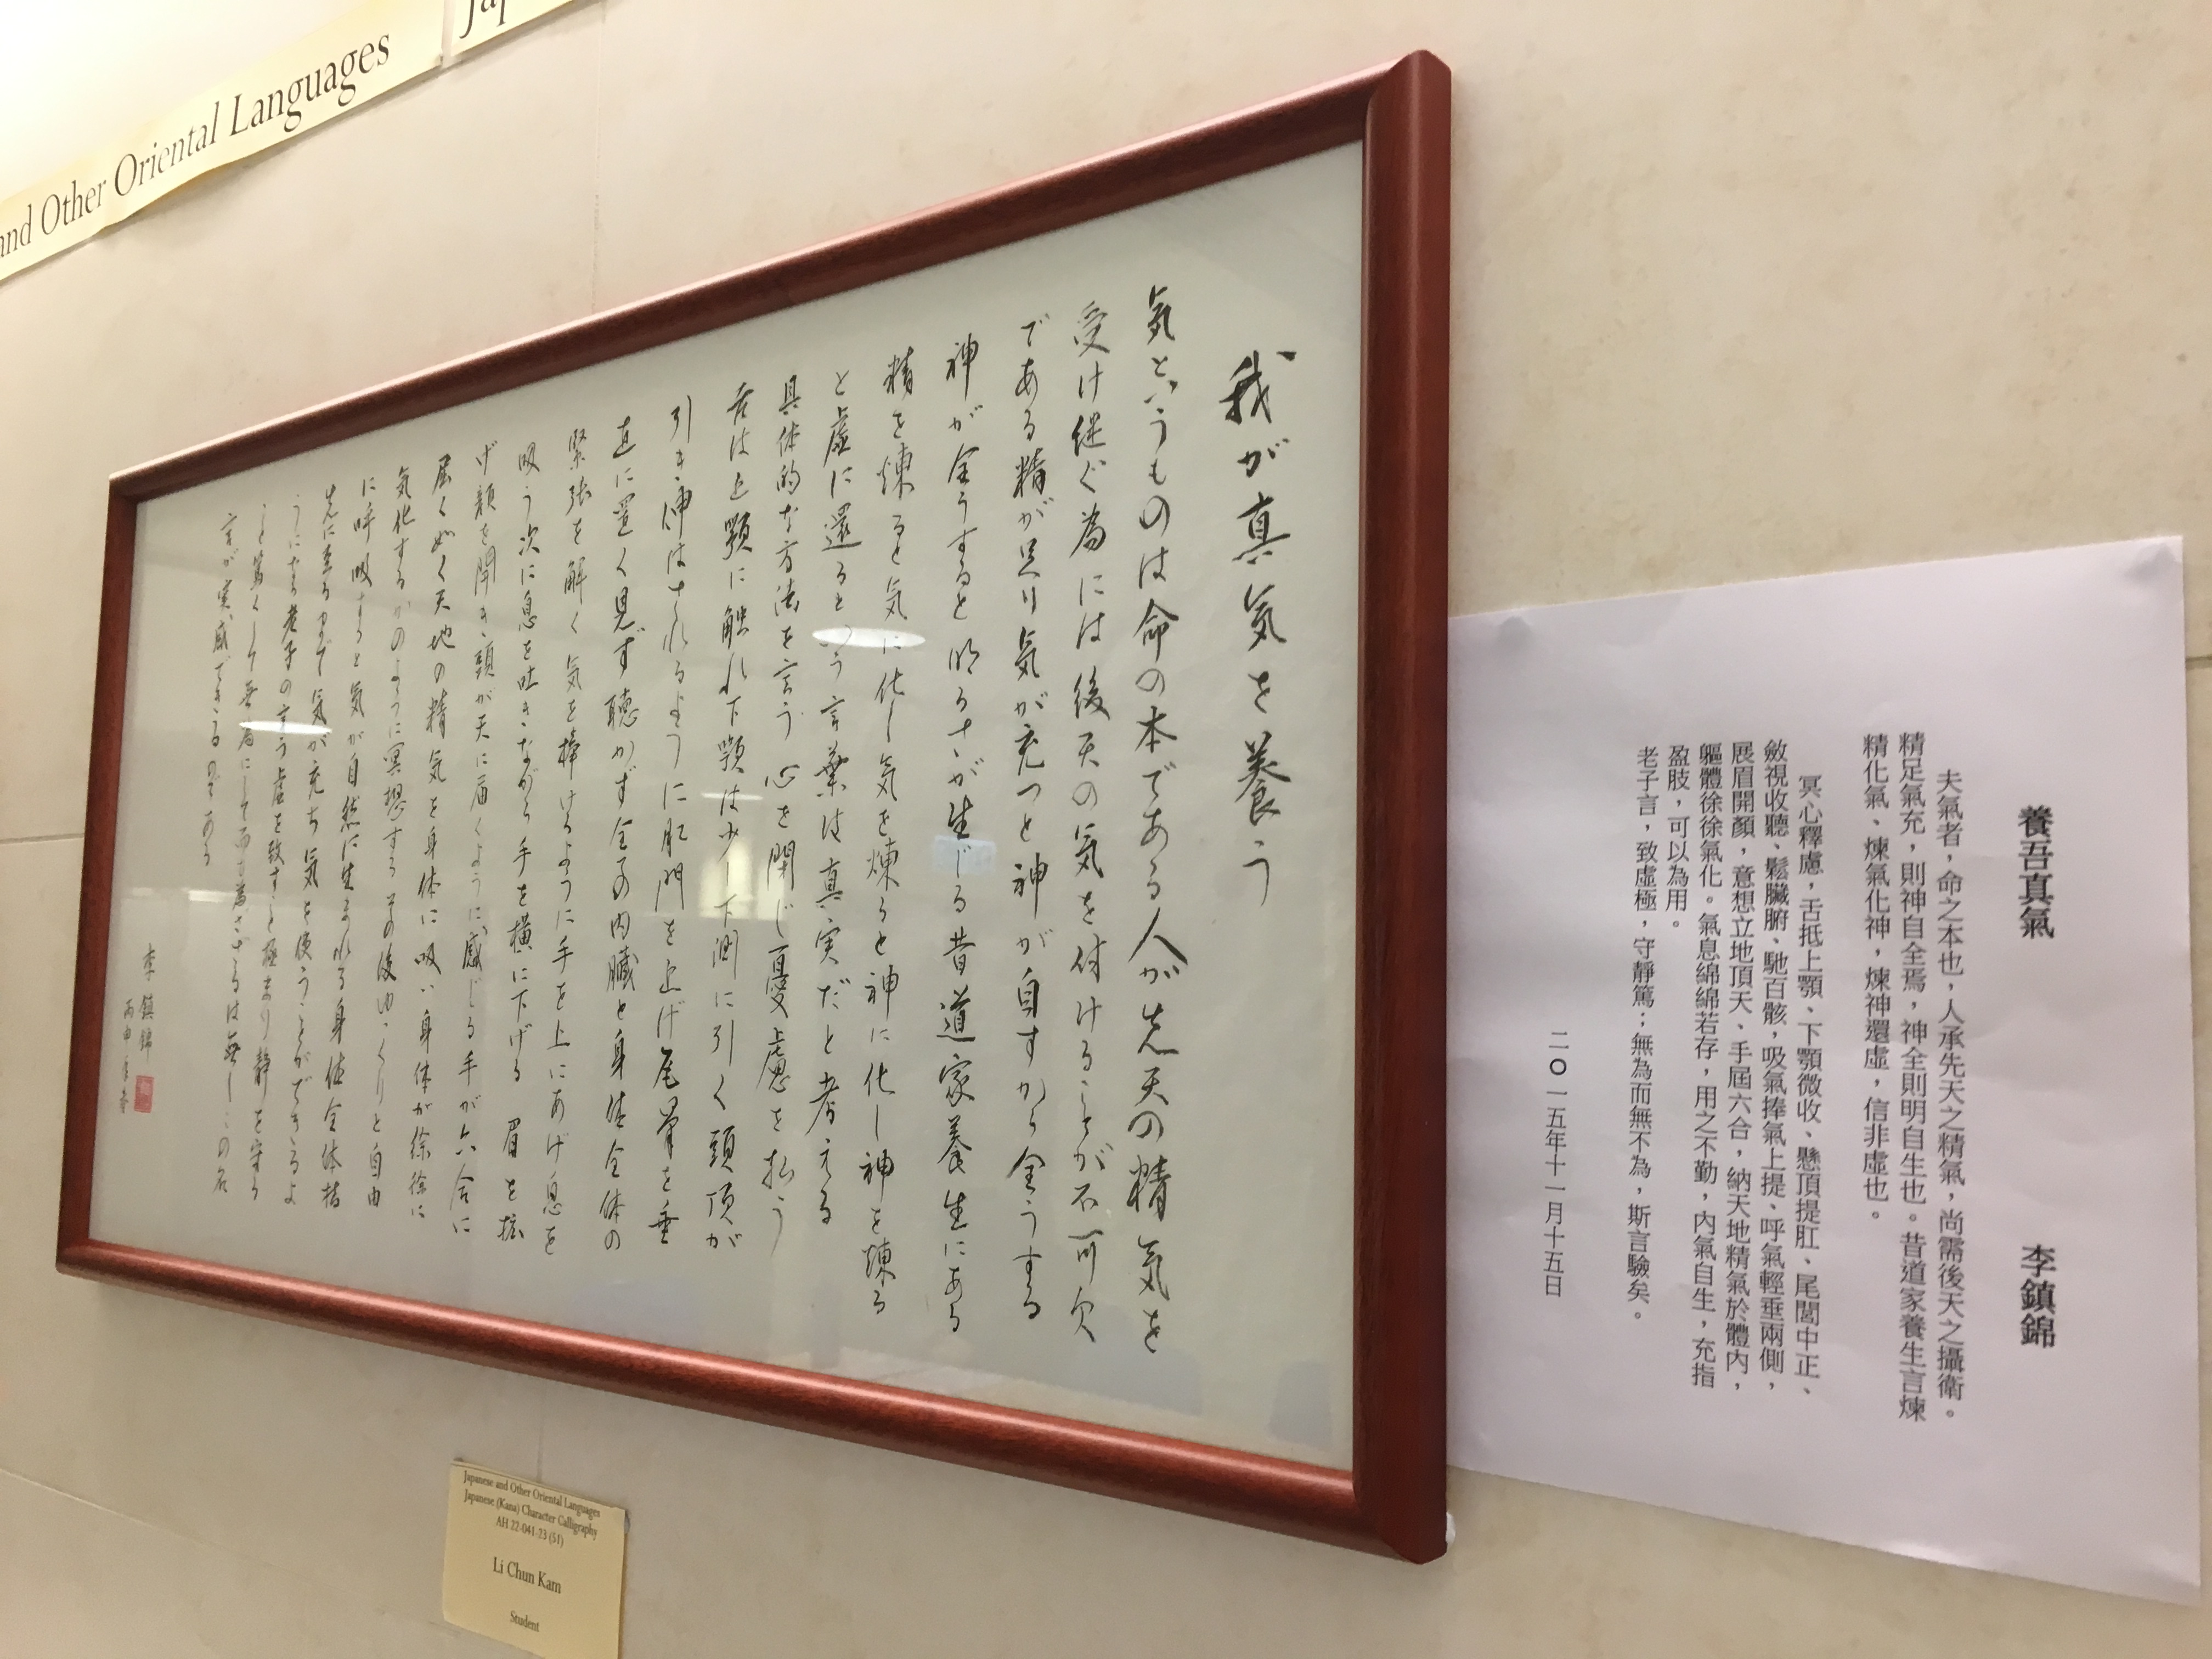 and Other Oriental Languages
Jap
我が真気を養う
気というものは命の本である人が先天の精気を
受け継ぐ為には後天の気を付けることが不可欠
である精が足り気が充つと神が自すから全うする
神が全うすると明るさが生じる昔道家養生にある
精を煉ると気に化し気を煉ると神に化し神を煉る
と虚に還るという言葉は真実だと考える
具体的な方法を言う 心を閉じ憂慮を払う
舌は上顎に触れ下顎は少し下側に引く頭頂が
引き伸はされるように肛門を上げ尾骨を垂
直に置く見ず聴かず全ての内臓と身体全体の
緊張を解く気を捧げるように手を上にあげ息を
吸う次に息を吐きながら手を横に下げる 眉を拡
げ顔を開き頭が天に届くように感じる手が六合に
届く如く天地の精気を身体に吸い身体が徐徐に
気化するかのように冥想するその後ゆっくりと自由
に呼吸すると気が自然に生まれる身体全体指
先に至るまで気が充ち気を使うことができるよ
うになる老子の言う虚を致すこと極まり静を守る
こと篤くして無為にして而も為さざるは無しこの名
言が実感できるのである
李鎮錦
丙申
養吾真氣 李鎮錦
夫氣者，命之本也，人承先天之精氣，尚需後天之攝衛。
精足氣充，則神自全焉，神全則明自生也。昔道家養生言煉
精化氣、煉氣化神，煉神還虛，信非虛也。
冥心釋慮，舌抵上顎、下顎微收、懸頂提肛、尾閭中正、
斂視收聽、鬆臟腑、馳百骸，吸氣捧氣上提、呼氣輕垂兩側，
展眉開顏，意想立地頂天、手屆六合，納天地精氣於體內，
軀體徐徐氣化。氣息綿綿若存，用之不勤，內氣自生，充指
盈肢，可以為用。
老子言，致虛極，守靜篤；無為而無不為，斯言驗矣。
二〇一五年十一月十五日
Japanese and Other Oriental Languages
Japanese (Kana) Character Calligraphy
AH 22-041-23 (S1)
Li Chun Kam
Student